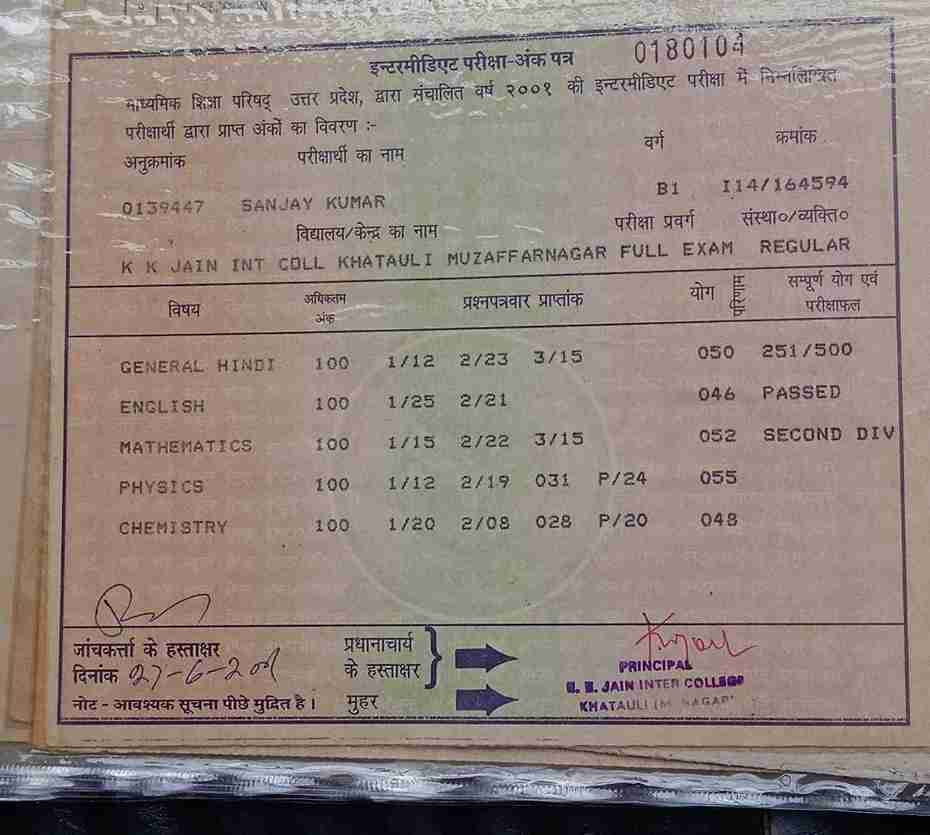 इन्टरमीडिएट परीक्षा-अंक पत्र 0180104
माध्यमिक शिक्षा परिषद् उत्तर प्रदेश, द्वारा संचालित वर्ष २००१ की इन्टरमीडिएट परीक्षा में निम्नलिखित
परीक्षार्थी द्वारा प्राप्त अंकों का विवरण :-
अनुक्रमांक परीक्षार्थी का नाम वर्ग क्रमांक
0139447 SANJAY KUMAR B1 I14/164594
विद्यालय/केन्द्र का नाम परीक्षा प्रवर्ग संस्था०/व्यक्ति०
K K JAIN INT COLL KHATAULI MUZAFFARNAGAR FULL EXAM REGULAR
विषय अधिकतम अंक प्रश्नपत्रवार प्राप्तांक योग परिणाम सम्पूर्ण योग एवं परीक्षाफल
GENERAL HINDI 100 1/12 2/23 3/15 050 251/500
ENGLISH 100 1/25 2/21 046 PASSED
MATHEMATICS 100 1/15 2/22 3/15 052 SECOND DIV
PHYSICS 100 1/12 2/19 031 P/24 055
CHEMISTRY 100 1/20 2/08 028 P/20 048
जांचकर्त्ता के हस्ताक्षर
दिनांक 27-6-2001
नोट - आवश्यक सूचना पीछे मुद्रित है।
प्रधानाचार्य
के हस्ताक्षर
मुहर
PRINCIPAL
K. K. JAIN INTER COLLEGE
KHATAULI (M. NAGAR)